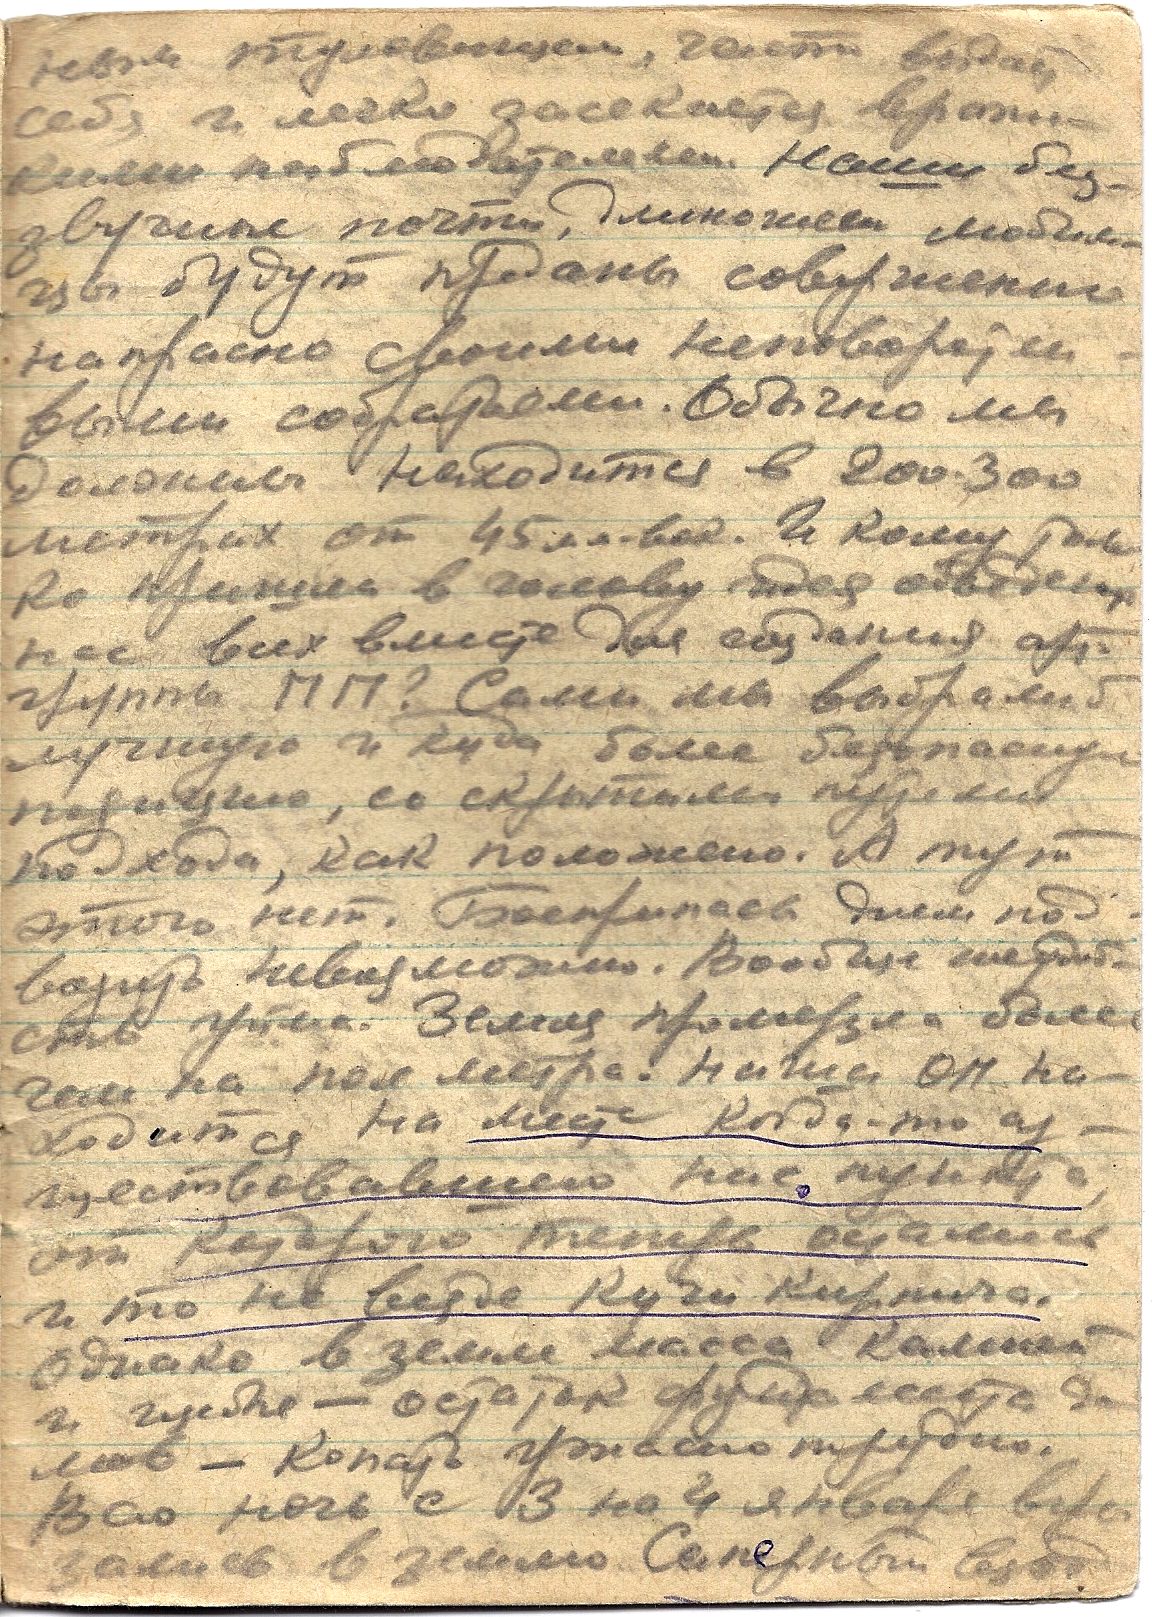 ным туловищем, часто выдает
себя и легко засекается вражес-
кими наблюдателями. Наши без-
звучные почти, длинношеи любим-
цы будут преданы совершенно
напрасно своими неповоротли-
выми собратьями. Обычно мы
должны находится в 200-300
метрах от 45 мм-вок. И кому толь
ко пришла в голову идея объедин
нас всех вместе для создания арт-
группы ПП? Сами мы выбрали б
лучшую и куда более безопасную
позицию, со скрытыми путями
подхода, как положено. А тут
этого нет. Боеприпасы днем под-
возить невозможно. Вообще
Земля промерзла более
чем на пол метра. Наша ОП на-
ходится на месте когда-то су-
ществовавшего нас. пункта,
от которого теперь остались
и то не везде кучи кирпича.
Однако в земле масса камней
и глубже — остаток фундамента до
мов — копать ужасно трудно.
Всю ночь с 3 на 4 января вгры
зались в землю. Саперный взвод